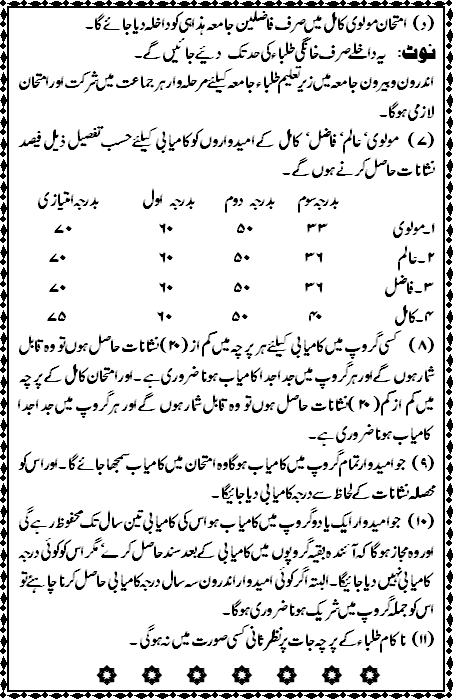 (د) امتحان مولوی کامل میں صرف فاضلین جامعہ ہذا ہی کو داخلہ دیا جائے گا۔
نوٹ: یہ داخلے صرف خانگی طلباء کی حد تک دیئے جائیں گے۔
اندرون و بیرون جامعہ میں زیر تعلیم طلباء جامعہ کیلئے مرحلہ وار ہر جماعت میں شرکت اور امتحان
لازمی ہوگا۔
(۷) مولوی‘ عالم‘ فاضل‘ کامل کے امیدواروں کو کامیابی کیلئے حسب تفصیل ذیل فیصد
نشانات حاصل کرنے ہوں گے۔
بدرجہ سوم بدرجہ دوم بدرجہ اول بدرجہ امتیازی
۱۔مولوی ۳۳ ۵۰ ۶۰ ۷۰
۲۔عالم ۳۶ ۵۰ ۶۰ ۷۰
۳۔فاضل ۳۶ ۵۰ ۶۰ ۷۰
۴۔کامل ۴۰ ۵۰ ۶۰ ۷۵
(۸) کسی گروپ میں کامیابی کیلئے ہر پرچہ میں کم از (۲۰) نشانات حاصل ہوں تو وہ قابل
شمار ہوں گے اور ہر گروپ میں جدا جدا کامیاب ہونا ضروری ہے۔ اور امتحان کامل کے پرچہ
میں کم از کم (۲۰) نشانات حاصل ہوں تو وہ قابل شمار ہوں گے اور ہر گروپ میں جدا جدا
کامیاب ہونا ضروری ہے۔
(۹) جو امیدوار تمام گروپ میں کامیاب ہوگا وہ امتحان میں کامیاب سمجھا جائے گا۔ اور اس کو
محصلہ نشانات کے لحاظ سے درجہ کامیابی دیا جائیگا۔
(۱۰) جو امیدوار ایک یا دو گروپ میں کامیاب ہو اس کی کامیابی تین سال تک محفوظ رہے گی
اور وہ مجاز ہوگا کہ آئندہ بقیہ گروپوں میں کامیابی کے بعد سند حاصل کرے‘ مگر اس کو کوئی درجہ
کامیابی نہیں دیا جائیگا۔ البتہ اگر کوئی امیدوار اندرون سہ سال درجہ کامیابی حاصل کرنا چاہئے تو
اس کو جملہ گروپ میں شریک ہونا ضروری ہوگا۔
(۱۱) ناکام طلباء کے پرچہ جات پر نظر ثانی کسی صورت میں نہ ہوگی۔